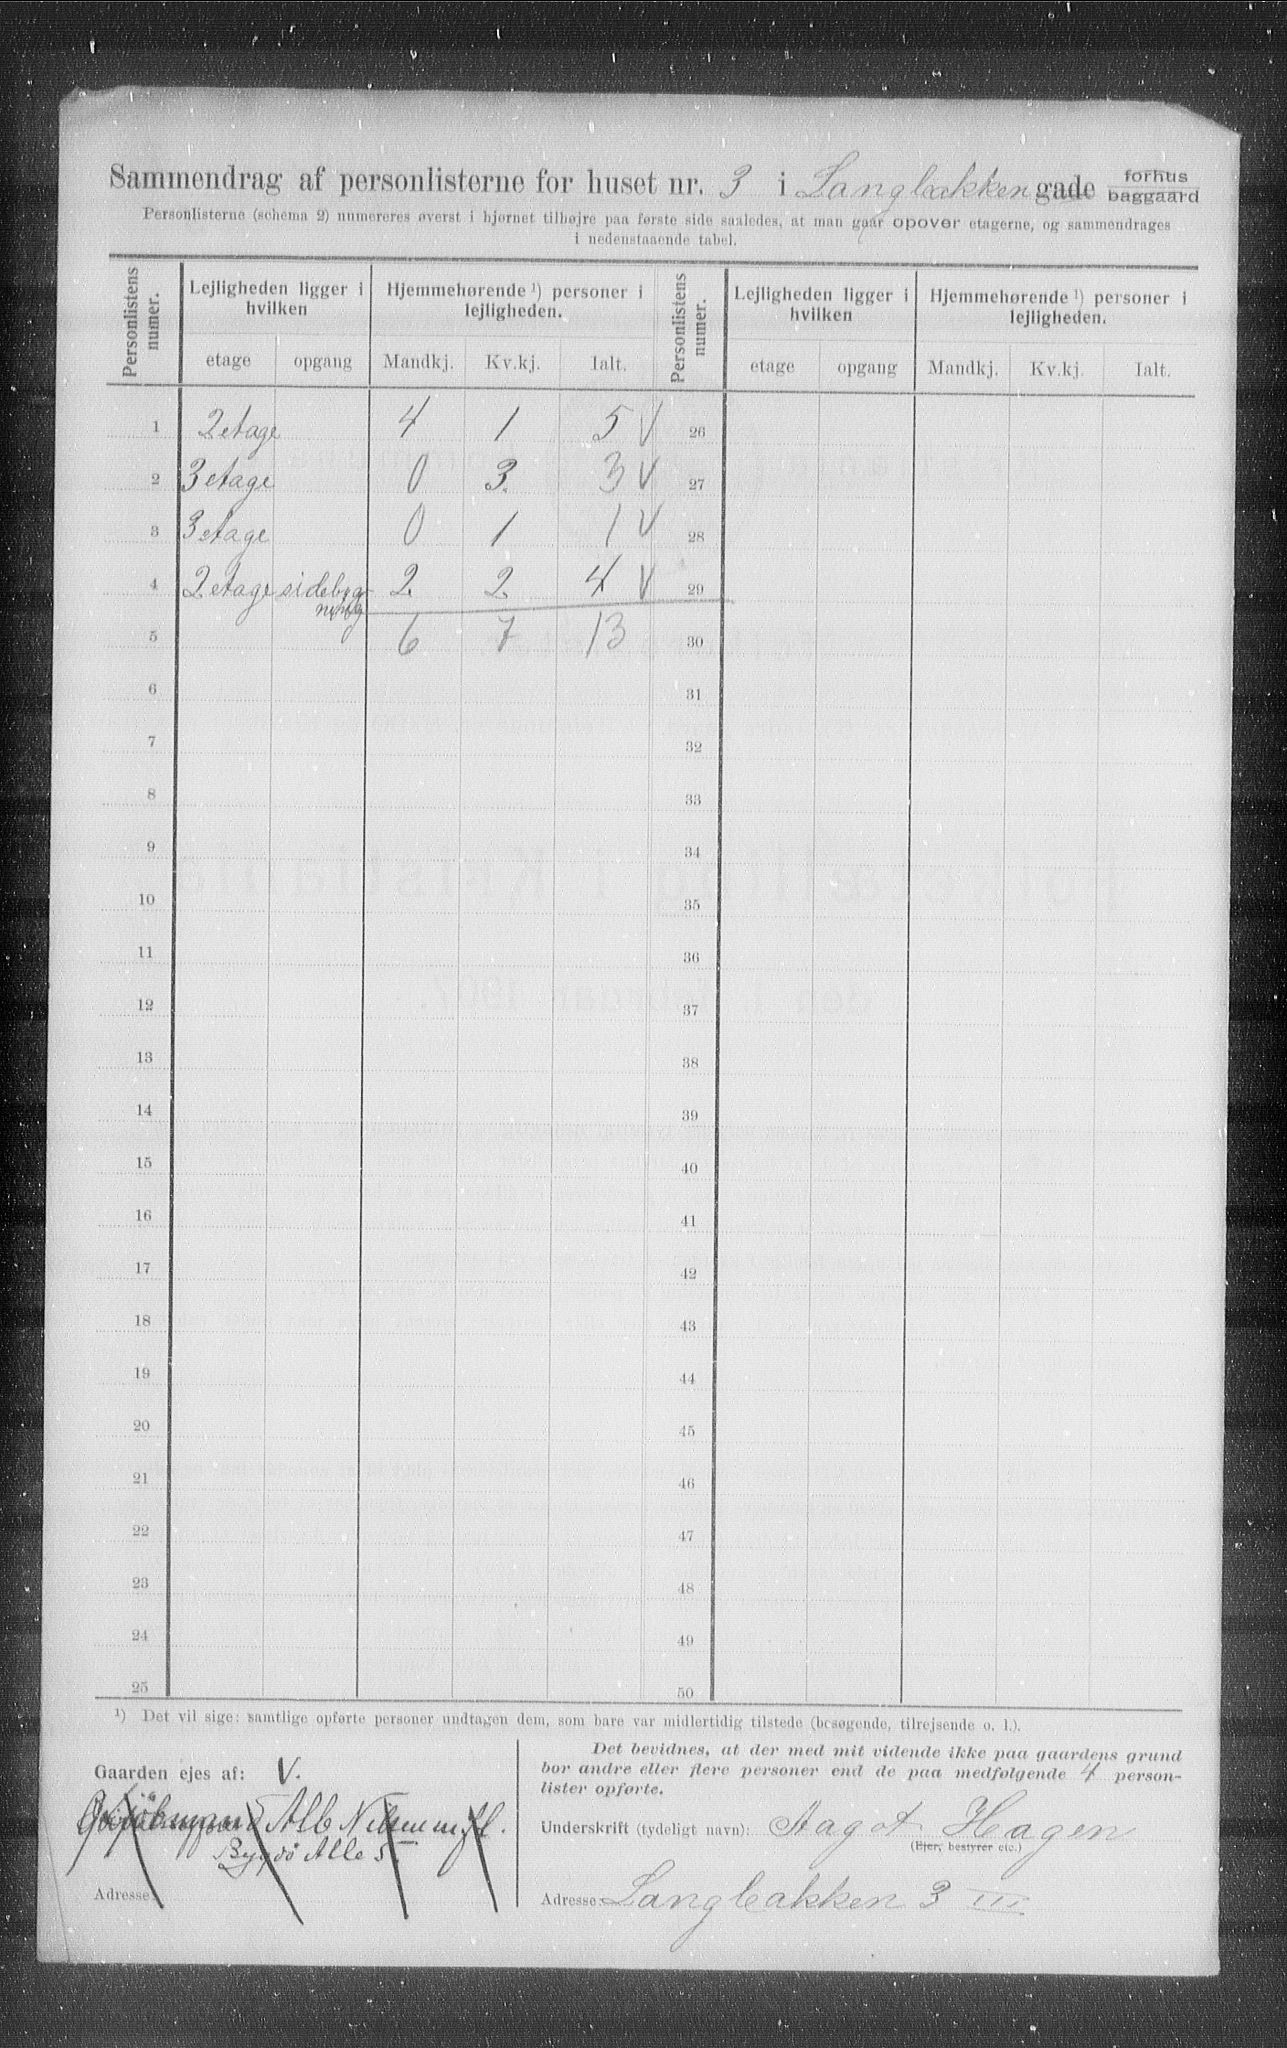 Sammendrag af personlisterne for huset nr. 3 i Langbakken gade forhus baggaard
Personlisterne (schema 2) numereres øverst i hjørnet tilhøjre paa første side saaledes, at man gaar opover etagerne, og sammendrages
i nedenstaaende tabel.
Personlistens numer. Lejligheden ligger i hvilken Hjemmehørende ¹) personer i lejligheden. Personlistens numer. Lejligheden ligger i hvilken Hjemmehørende ¹) personer i lejligheden.
etage opgang Mandkj. Kv.kj. Ialt. etage opgang Mandkj. Kv.kj. Ialt.
1 2 etage 4 1 5 V 26
2 3 etage 0 3. 3 V 27
3 3 etage 0 1 1 V 28
4 2 etage sidebyg 2. 2. 4 V 29
ning
5 6 7 13 30
6 31
7 32
8 33
9 34
10 35
11 36
12 37
13 38
14 39
15 40
16 41
17 42
18 43
19 44
20 45
21 46
22 47
23 48
24 49
25 50
¹) Det vil sige: samtlige opførte personer undtagen dem, som bare var midlertidig tilstede (besøgende, tilrejsende o. l.).
Gaarden ejes af: V.
Alb Nilsen m fl.
Bygdö Alle 5.
Adresse:
Det bevidnes, at der med mit vidende ikke paa gaardens grund
bor andre eller flere personer end de paa medfølgende 4 person-
lister opførte.
Underskrift (tydeligt navn): Aagot Hagen
(Ejer, bestyrer etc.)
Adresse: Langbakken 3 III